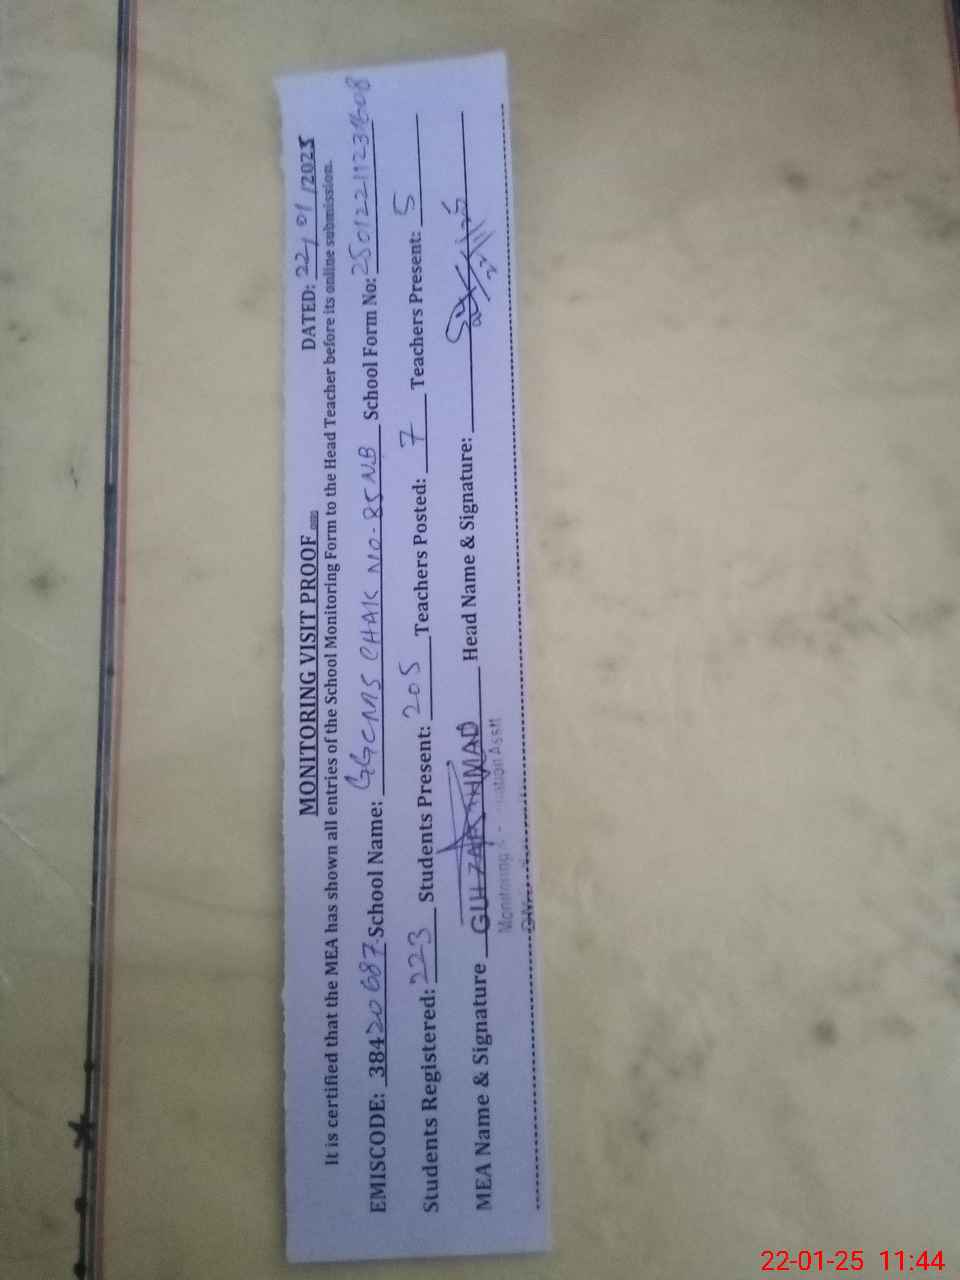 MONITORING VISIT PROOF
DATED: 22/01/2025
It is certified that the MEA has shown all entries of the School Monitoring Form to the Head Teacher before its online submission.
EMISCODE: 38420687 School Name: GGCMS CHAK NO-85NB School Form No: 2501221123
Students Registered: 223 Students Present: 205 Teachers Posted: 7 Teachers Present: 5
MEA Name & Signature AHMAD Head Name & Signature:
Monitoring & Asstt
22-01-25 11:44